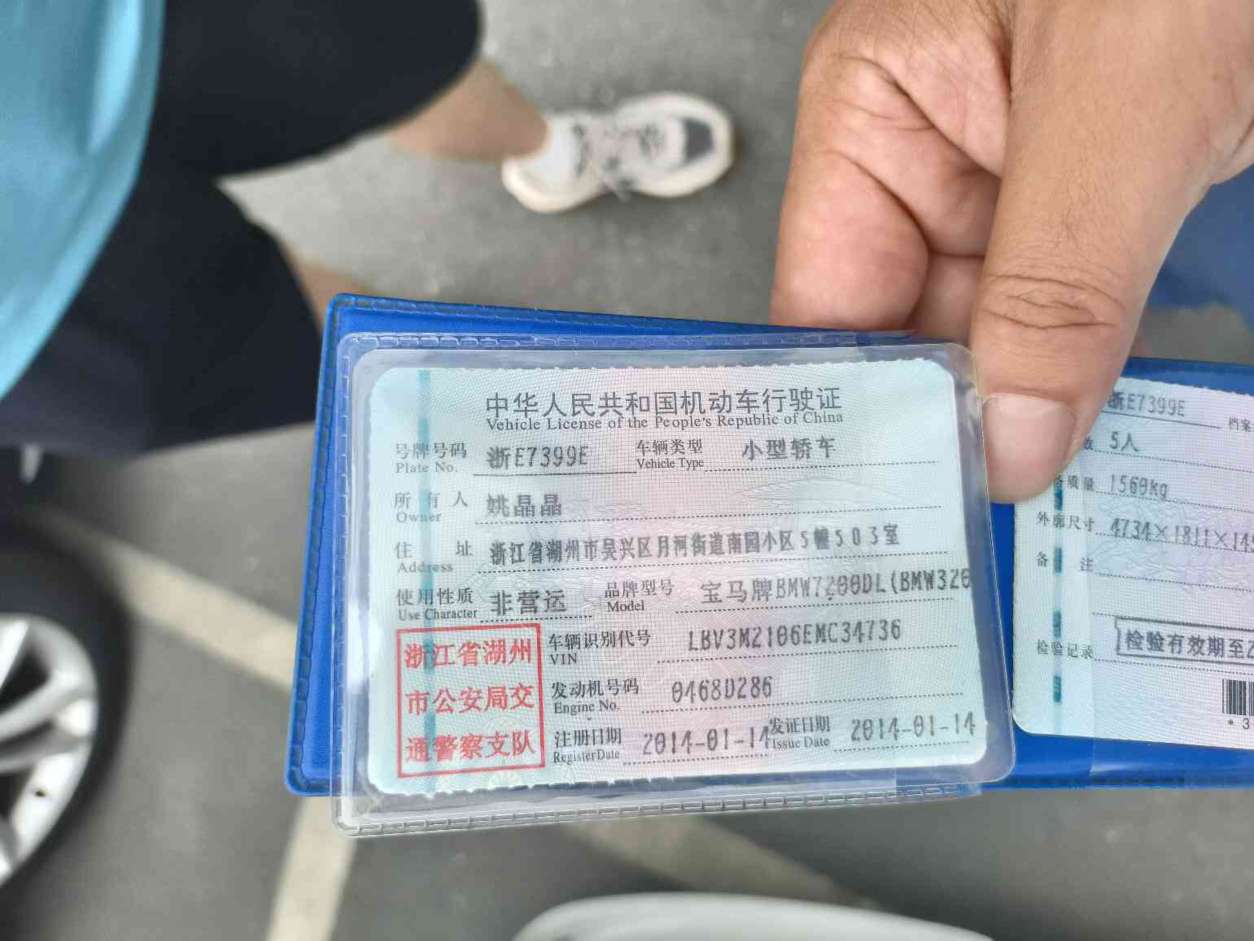 中华人民共和国机动车行驶证
Vehicle License of the People's Republic of China
号牌号码 浙E7399E 车辆类型 小型轿车
Plate No. Vehicle Type
所有人 姚晶晶
Owner
住址 浙江省湖州市吴兴区月河街道南园小区5幢503室
Address
使用性质 非营运 品牌型号 宝马牌BMW7200DL(BMW320
Use Character Model
浙江省湖州
市公安局交
通警察支队
车辆识别代号 LBV3M2106EMC34736
VIN
发动机号码 0468D286
Engine No.
注册日期 2014-01-14 发证日期 2014-01-14
Register Date Issue Date
浙E7399E 档案
5人
质量 1560kg
外廓尺寸 4734×1811×145
备注
检验记录 检验有效期至2
*3